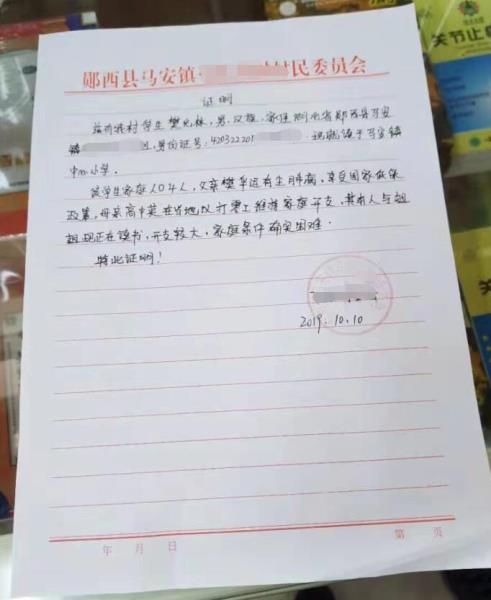 郧西县马安镇 村民委员会
证明
兹有我村学生樊 林，男，汉族，家住湖北省郧西县马安
镇 组，身份证号：420322201 现就读于马安镇
中心小学。
该学生家庭人口4人，父亲樊 运有尘肺病，享受国家低保
政策，母亲高中英在当地以打零工维持家庭开支，其本人与姐
姐现正在读书，开支较大，家庭条件确实困难。
特此证明！
2019.10.10
年 月 日
第 页
关节止痛